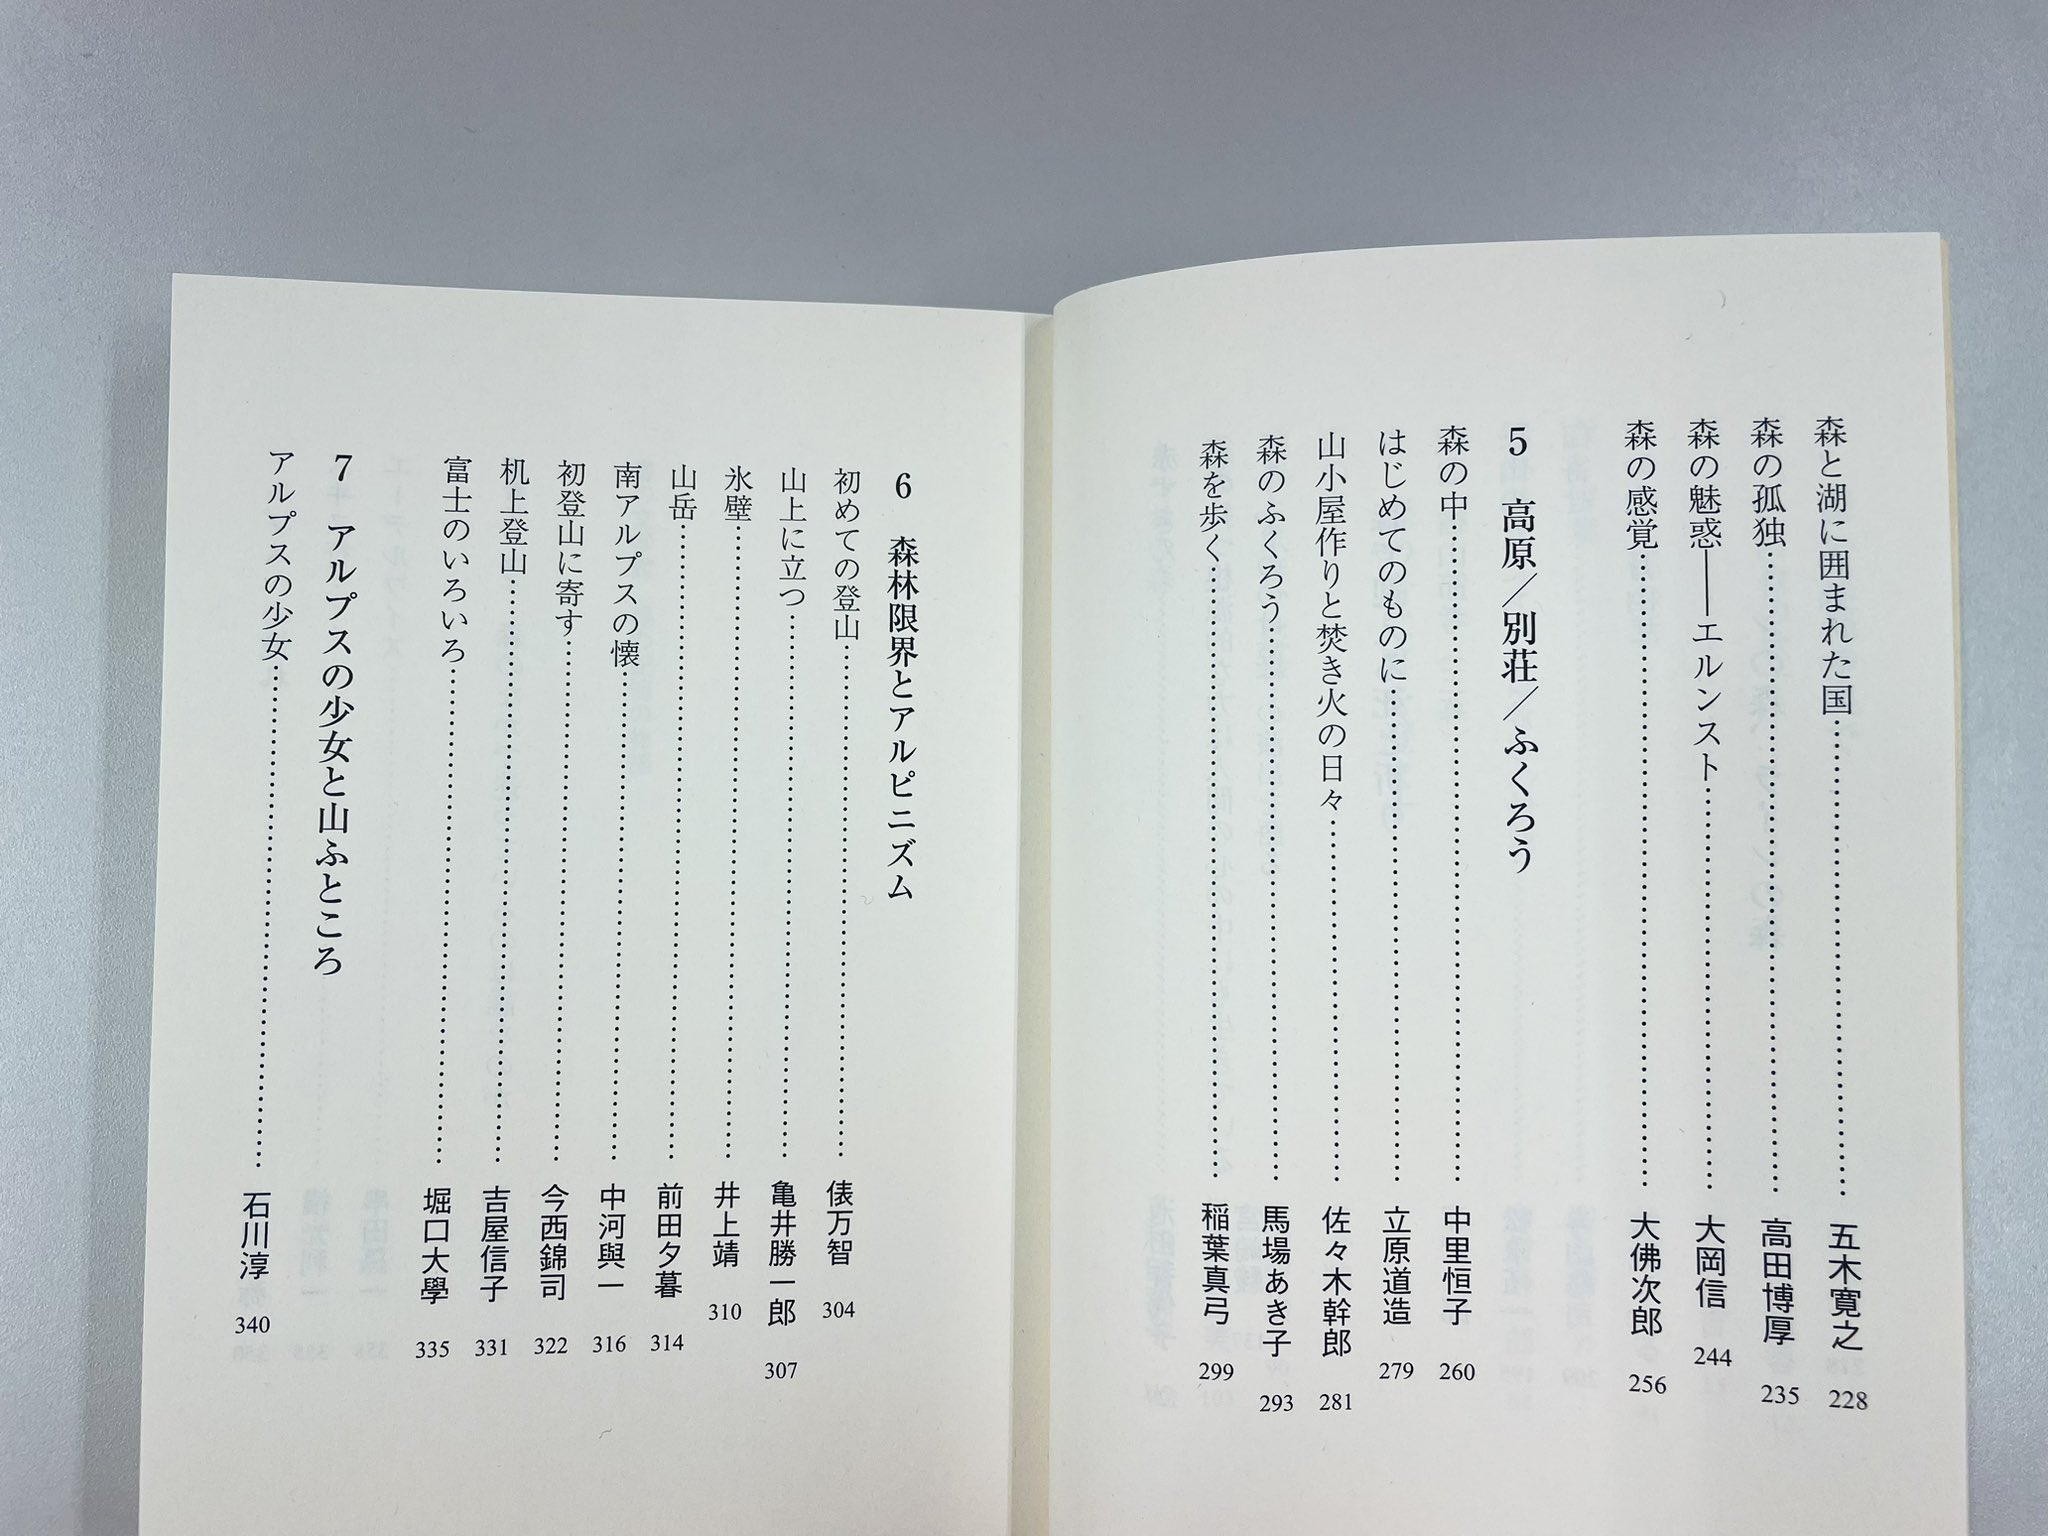 森と湖に囲まれた国……五木寛之 228
森の孤独……高田博厚 235
森の魅惑――エルンスト……大岡信 244
森の感覚……大佛次郎 256
5 高原／別荘／ふくろう
森の中……中里恒子 260
はじめてのものに……立原道造 279
山小屋作りと焚き火の日々……佐々木幹郎 281
森のふくろう……馬場あき子 293
森を歩く……稲葉真弓 299
6 森林限界とアルピニズム
初めての登山……俵万智 304
山上に立つ……亀井勝一郎 307
氷壁……井上靖 310
山岳……前田夕暮 314
南アルプスの懐……中河與一 316
初登山に寄す……今西錦司 322
机上登山……吉屋信子 331
富士のいろいろ……堀口大學 335
7 アルプスの少女と山ふところ
アルプスの少女……石川淳 340